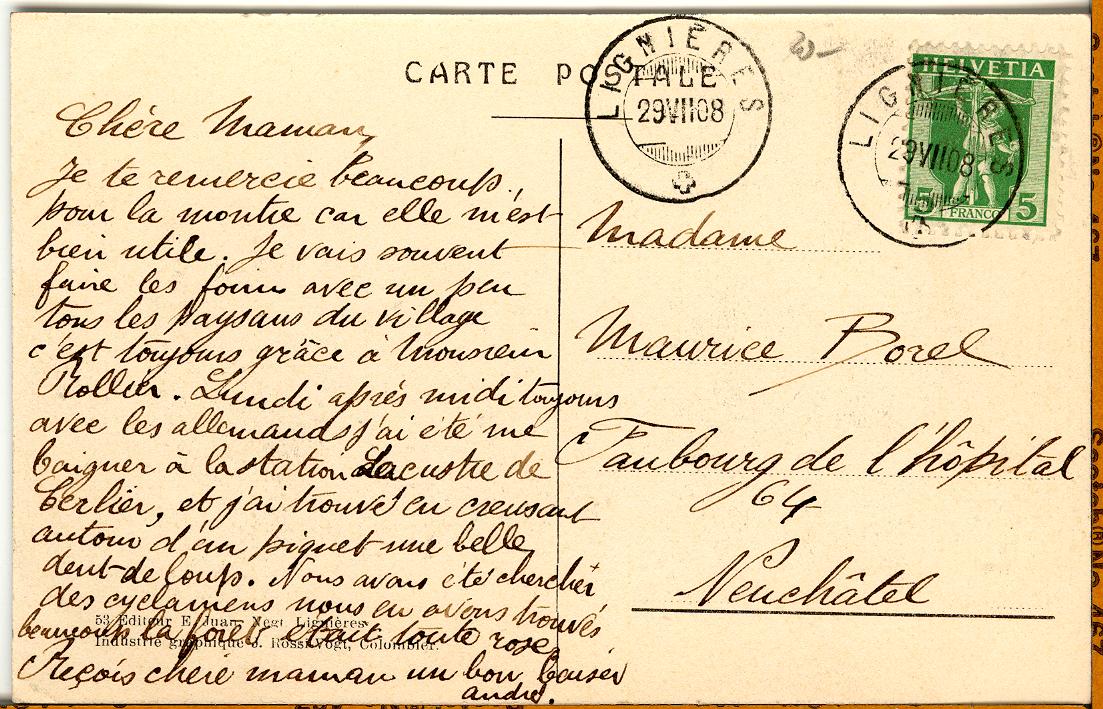 CARTE POSTALE
LIGNIÈRES
29 VII 08
LIGNIÈRES
29 VII 08
HELVETIA
5 FRANCO 5
Chère Maman,
Je te remercie beaucoup
pour la montre car elle m'est
bien utile. Je vais souvent
faire les foins avec un peu
tous les paysans du village
c'est toujours grâce à Monsieur
Rollier. Lundi après midi toujours
avec les allemands j'ai été me
baigner à la station Lacustre de
Cerlier, et j'ai trouvé en creusant
autour d'un piquet une belle
dent-de loup. Nous avons été chercher
des cyclamens nous en avons trouvés
beaucoup la forêt était toute rose
Reçois chère maman un bon baiser
andré.
Madame
Maurice Borel
Faubourg de l'hôpital
64
Neuchâtel
53 Editeur E. Juan, Negt Lignières.
Industrie graphique J. Rossi-Vogt, Colombier.